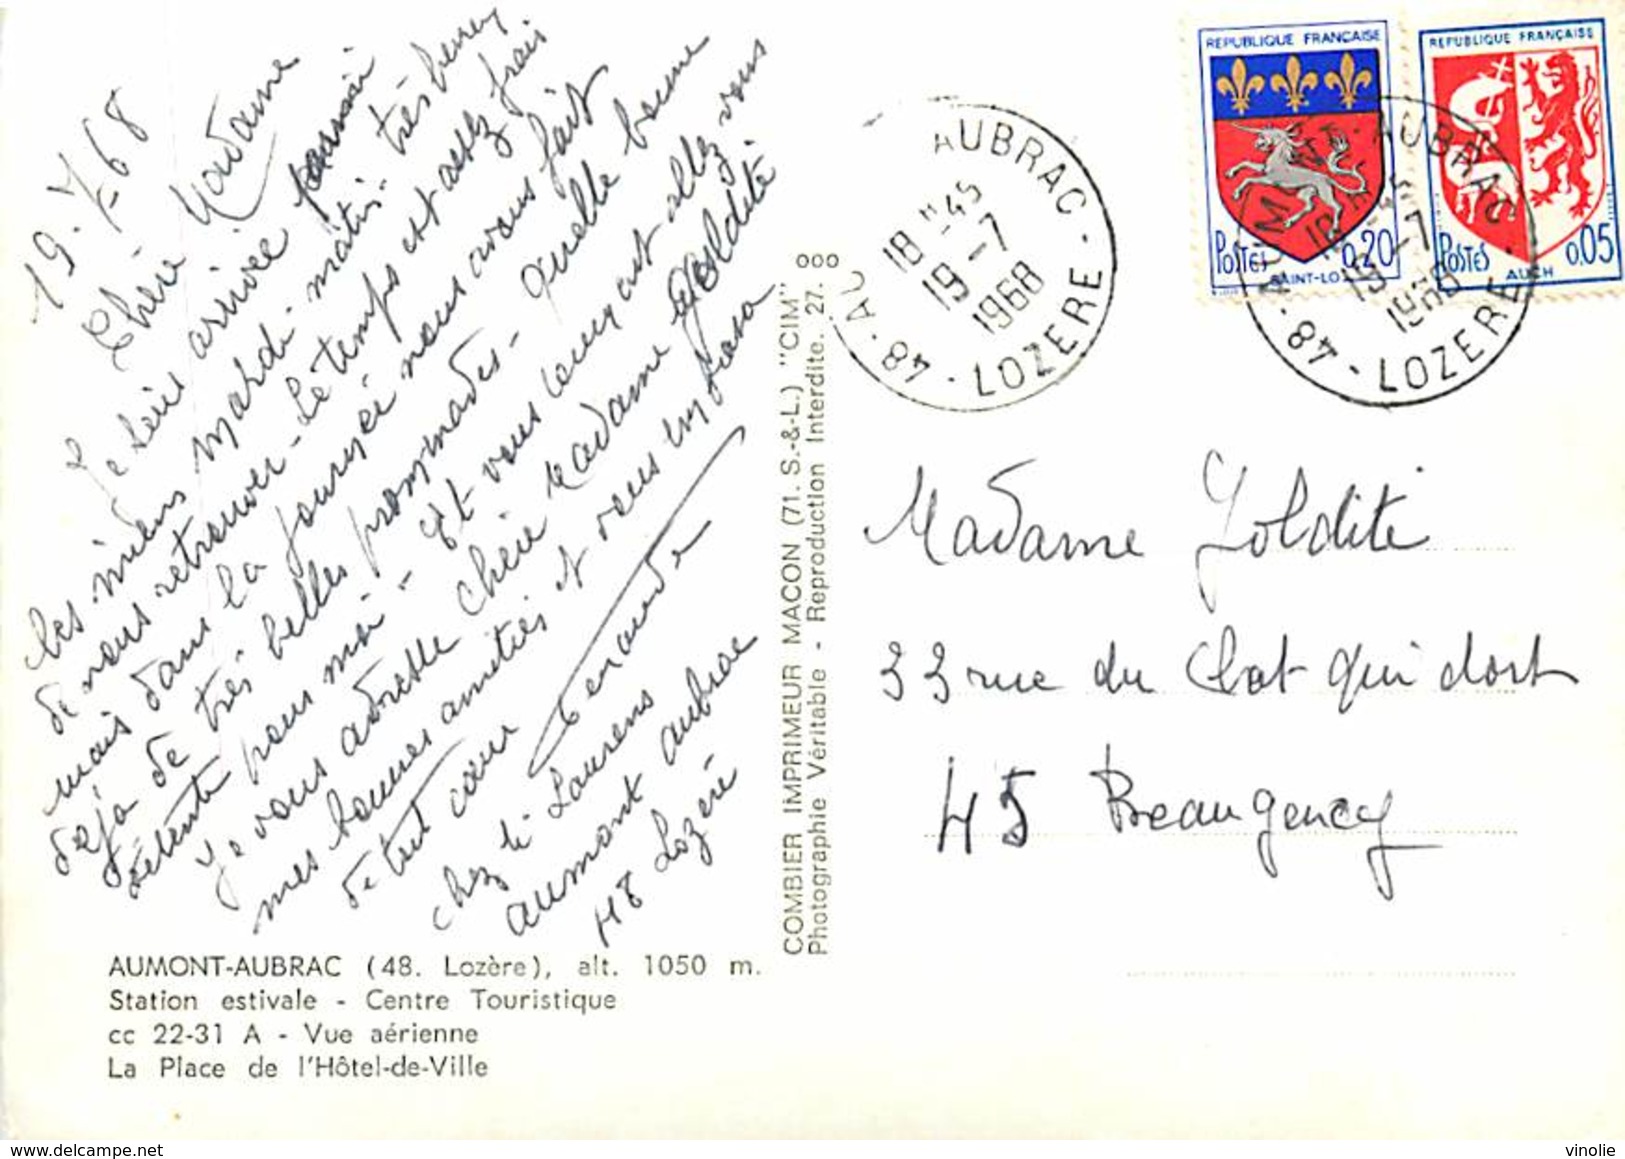 19-7-68
Chère Madame
Je suis arrivée parmi
les miens mardi matin très heureux
de nous retrouver - Le temps est assez frais
mais dans la journée nous avons fait
déjà de très belles prommades - quelle bonne
détente pour moi - Et vous comment allez vous
Je vous adresse chère Madame Joldité
mes bonnes amitiés et vous embrasse
de tout cœur
chez
Laurens
aumont aubrac
48 Lozère
AUMONT-AUBRAC (48. Lozère), alt. 1050 m.
Station estivale - Centre Touristique
cc 22-31 A - Vue aérienne
La Place de l'Hôtel-de-Ville
COMBIER IMPRIMEUR MACON (71. S.-&-L.) "CIM"
Photographie Véritable - Reproduction Interdite. 27.
000
AUBRAC
18 H 45
19 - 7
1968
48 - LOZERE
REPUBLIQUE FRANÇAISE
POSTES 0,20
SAINT-LO
REPUBLIQUE FRANÇAISE
POSTES 0,05
AUCH
AUM AUBRAC
48 - LOZERE
Madame Joldité
33 rue du Chat qui dort
45 Beaugency
vinolie